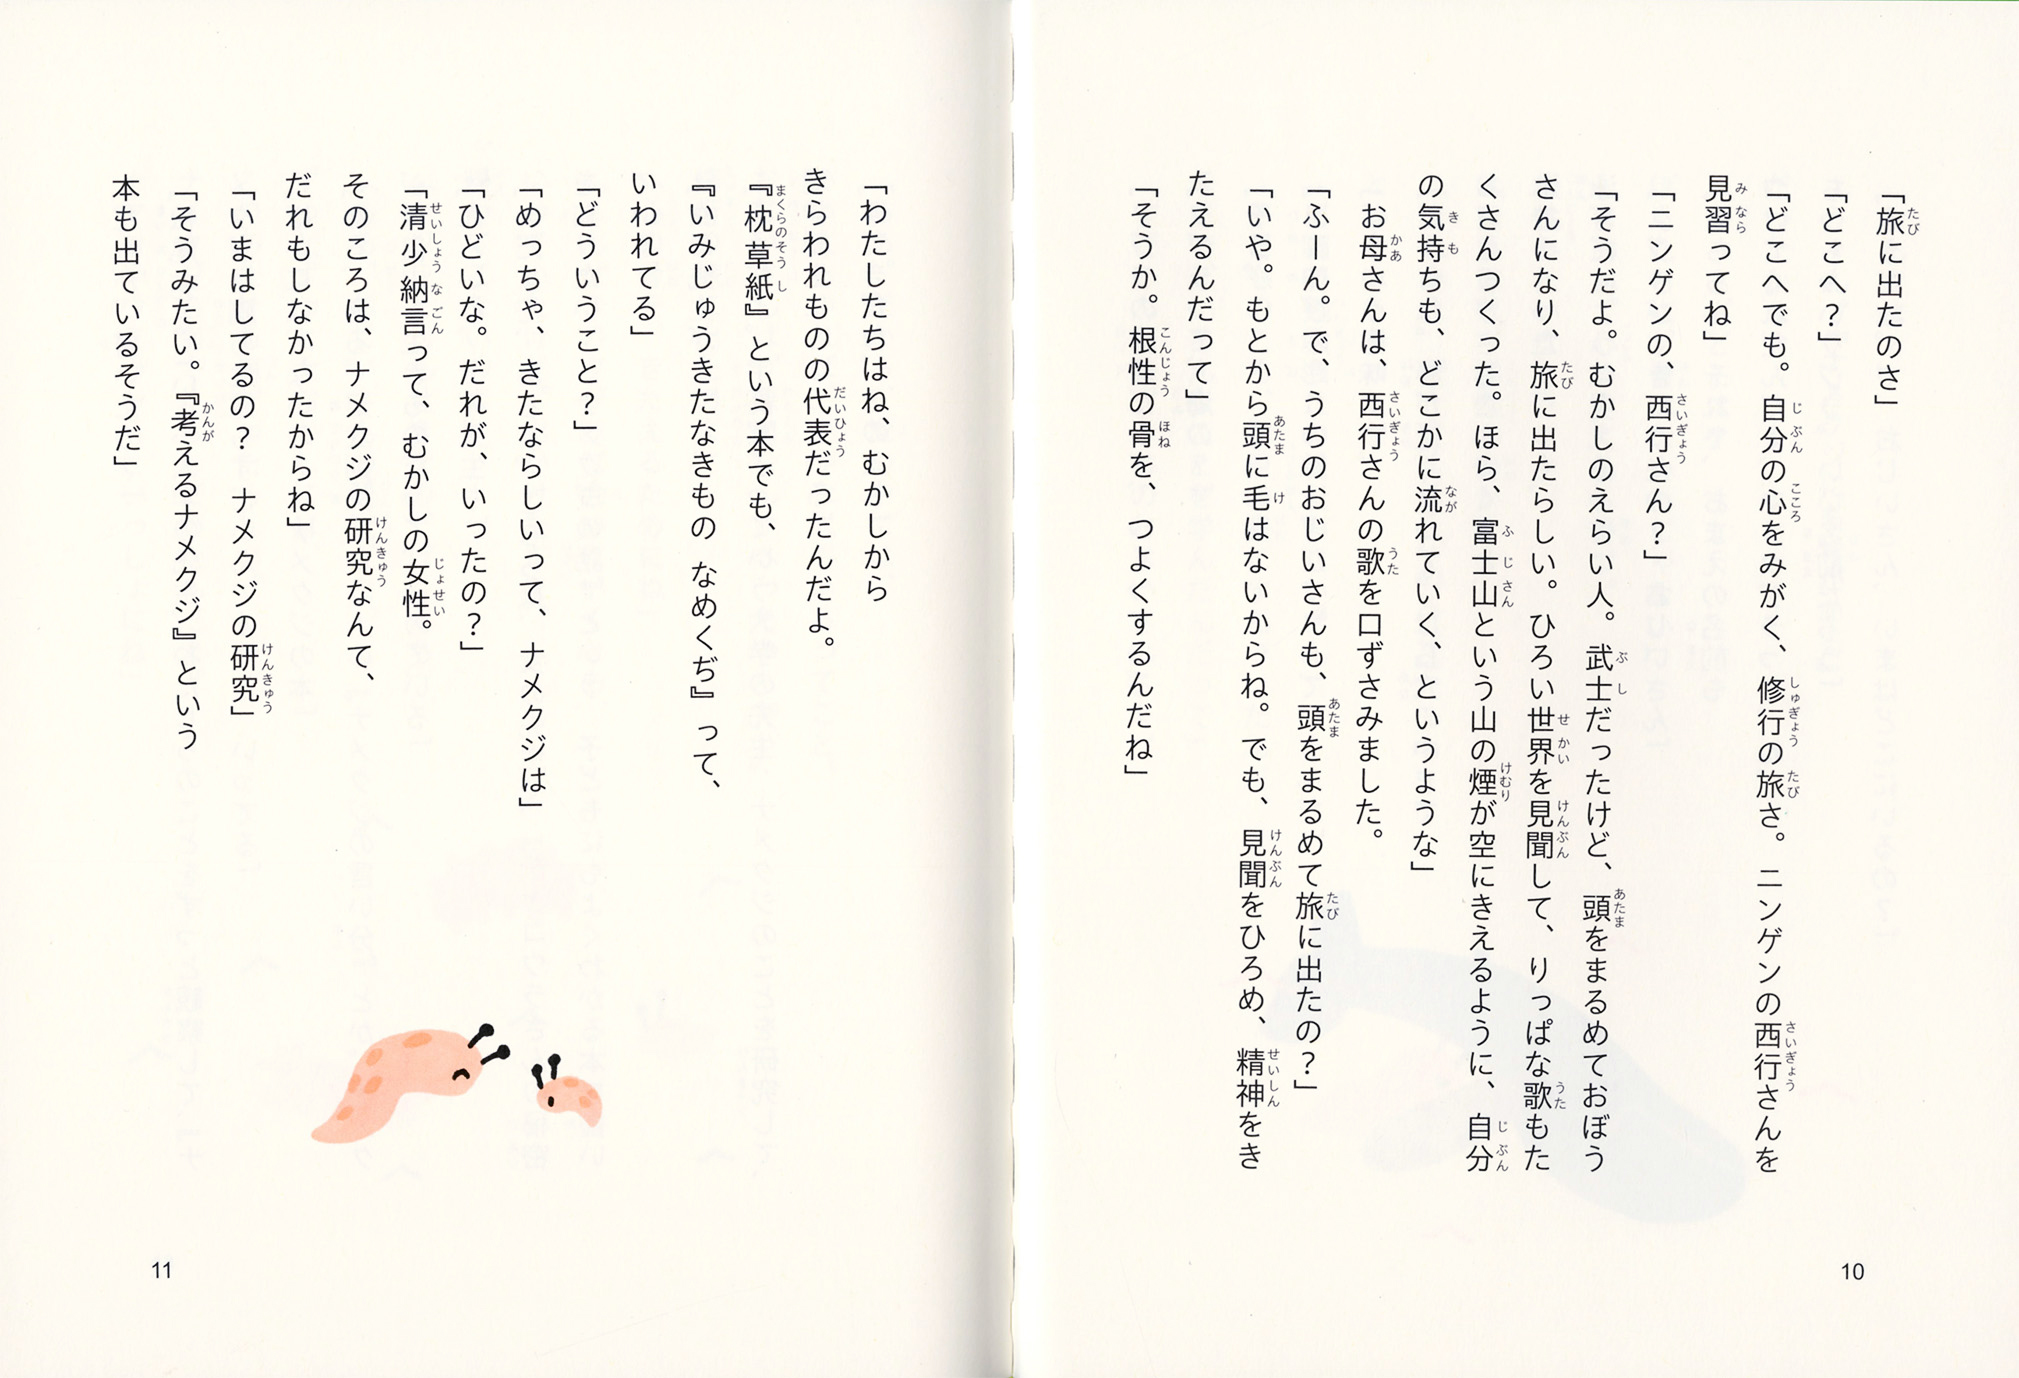 「旅に出たのさ」
「どこへ？」
「どこへでも。自分の心をみがく、修行の旅さ。ニンゲンの西行さんを
見習ってね」
「ニンゲンの、西行さん？」
「そうだよ。むかしのえらい人。武士だったけど、頭をまるめておぼう
さんになり、旅に出たらしい。ひろい世界を見聞して、りっぱな歌もた
くさんつくった。ほら、富士山という山の煙が空にきえるように、自分
の気持ちも、どこかに流れていく、というような」
お母さんは、西行さんの歌を口ずさみました。
「ふーん。で、うちのおじいさんも、頭をまるめて旅に出たの？」
「いや。もとから頭に毛はないからね。でも、見聞をひろめ、精神をき
たえるんだって」
「そうか。根性の骨を、つよくするんだね」
10
「わたしたちはね、むかしから
きらわれものの代表だったんだよ。
『枕草紙』という本でも、
『いみじゅうきたなきもの なめくぢ』って、
いわれてる」
「どういうこと？」
「めっちゃ、きたならしいって、ナメクジは」
「ひどいな。だれが、いったの？」
「清少納言って、むかしの女性。
そのころは、ナメクジの研究なんて、
だれもしなかったからね」
「いまはしてるの？　ナメクジの研究」
「そうみたい。『考えるナメクジ』という
本も出ているそうだ」
11